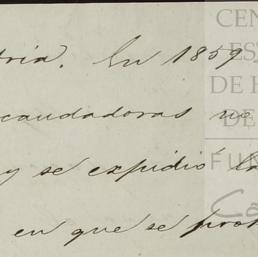 tria. En 1859
caudadoras no
y se expidió la
en que se proh
CEN
ES
DE H
DE
FUN
Ca